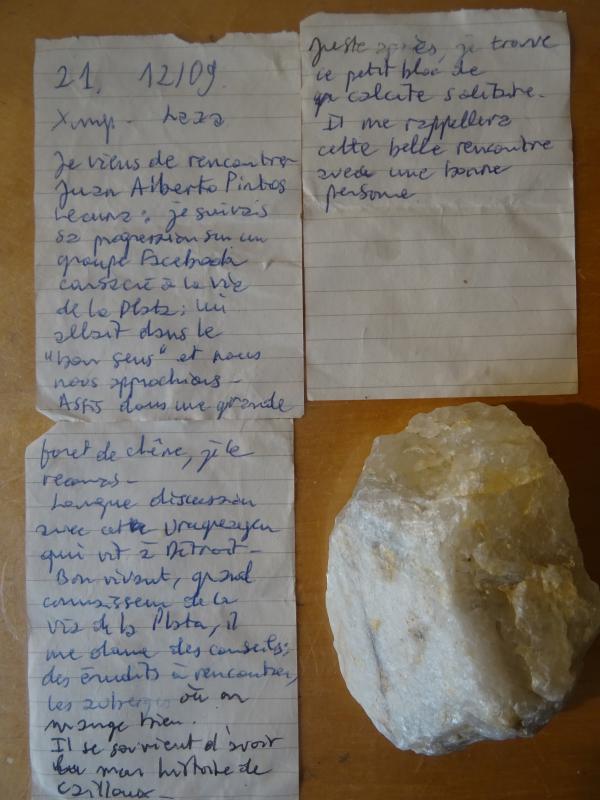 21. 12/09.
Je viens de rencontrer
Juan Alberto Pintos
Lecuna; je suivais
sa progression sur un
groupe Facebook
consacré à la via
de la Plata; lui
allait dans le
"bon sens" et nous
nous approchions -
Assis dans une grande
foret de chêne, je le
reconus -
Longue discussion
avec cet Urugayen
qui vit à Détroit -
Bon vivant, grand
connaisseur de la
via de la Plata, il
me donne des conseils;
des érudits à rencontrer,
les auberges où on
mange bien.
Il se souvient d'avoir
lu mon histoire de
cailloux -
Juste après, je trouve
ce petit bloc de
calcite solitaire.
Il me rappellera
cette belle rencontre
avec une bonne
personne